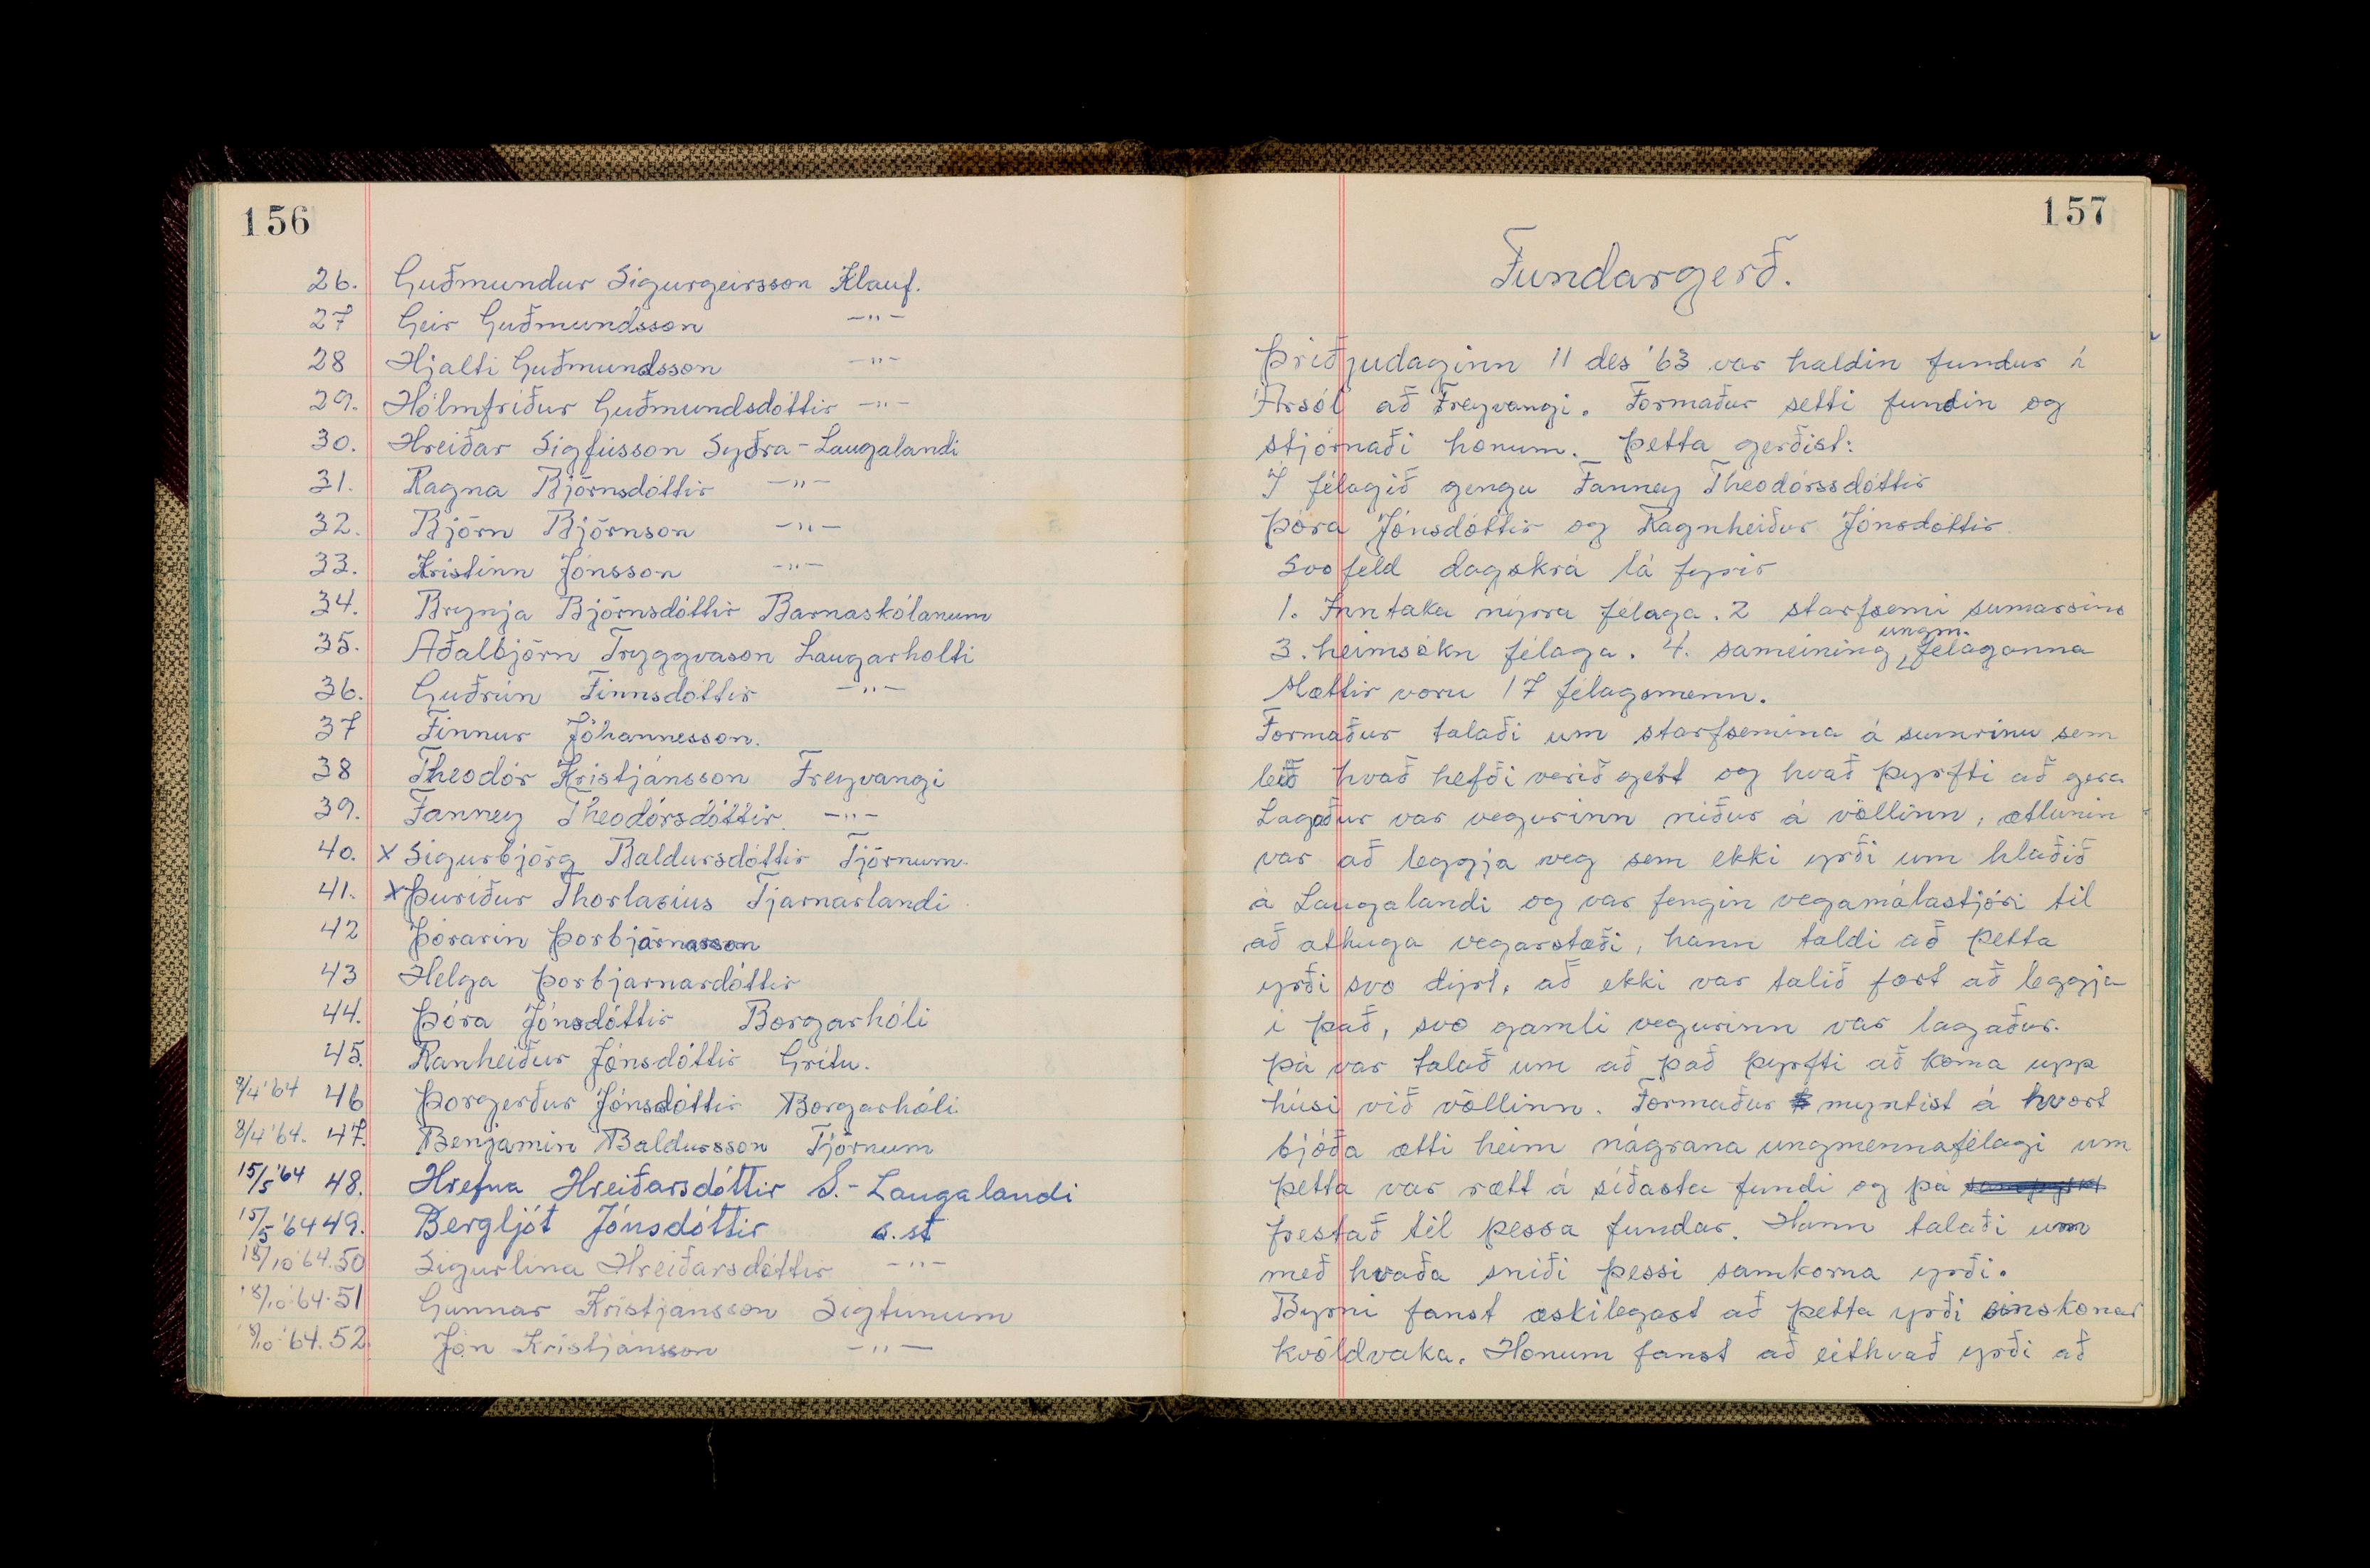 156
26. Guðmundur Sigurgeirsson Klauf.
27 Geir Guðmundsson —"—
28 Hjalti Guðmundsson —"—
29. Hólmfríður Guðmundsdóttir —"—
30. Hreiðar Sigfússon Syðra-Laugalandi
31. Ragna Björnsdóttir —"—
32. Björn Björnson —"—
33. Kristinn Jónsson —"—
34. Brynja Björnsdóttir Barnaskólanum
35. Aðalbjörn Tryggvason Laugarholti
36. Guðrún Finnsdóttir —"—
37 Finnur Jóhannesson.
38 Theodór Kristjánsson Freyvangi
39. Fanney Theodórsdóttir —"—
40. x Sigurbjörg Baldursdóttir Tjörnum.
41. x Þuríður Thorlasíus Tjarnarlandi
42 Þórarin Þorbjarnarson
43 Helga Þorbjarnardóttir
44. Þóra Jónsdóttir Borgarhóli
45. Ranheiður Jónsdóttir Grítu.
8/4 '64 46 Þorgerður Jónsdóttir Borgarhóli
8/4 '64. 47. Benjamín Baldursson Tjörnum
15/5 '64 48. Hrefna Hreiðarsdóttir S.-Laugalandi
15/5 '64 49. Bergljót Jónsdóttir s.st
18/10 '64. 50 Sigurlína Hreiðarsdóttir —"—
18/10 '64. 51 Gunnar Kristjánsson Sigtúnum
18/10 '64. 52. Jón Kristjánsson —"—
157
Fundargerð.
Þriðjudaginn 11 des '63 var haldin fundur í
Ársól að Freyvangi. Formaður setti fundin og
stjórnaði honum. Þetta gerðist:
Í félagið gengu Fanney Theodórssdóttir
Þóra Jónsdóttir og Ragnheiður Jónsdóttir.
Svofeld dagskrá lá fyrir
1. Inntaka nýrra félaga. 2 starfsemi sumarsins
3. heimsókn félaga. 4. sameining ungm. félaganna
Mættir voru 17 félagsmenn.
Formaður talaði um starfsemina á sumrinu sem
leið hvað hefði verið gert og hvað þyrfti að gera
Lagaður var vegurinn niður á völlinn, ætlunin
var að leggja veg sem ekki yrði um hlaðið
á Laugalandi og var fengin vegamálastjóri til
að athuga vegarstæði, hann taldi að þetta
yrði svo dýrt, að ekki var talið fært að leggja
í það, svo gamli vegurinn var lagaður.
Þá var talað um að það þyrfti að koma upp
húsi við völlinn. Formaður myntist á hvort
bjóða ætti heim nágrana ungmennafélagi um
þetta var rætt á síðasta fundi og þá
frestað til þessa fundar. Hann talaði um
með hvaða sniði þessi samkoma yrði.
Byrni fanst æskilegast að þetta yrði einskonar
kvöldvaka. Honum fanst að eithvað yrði að